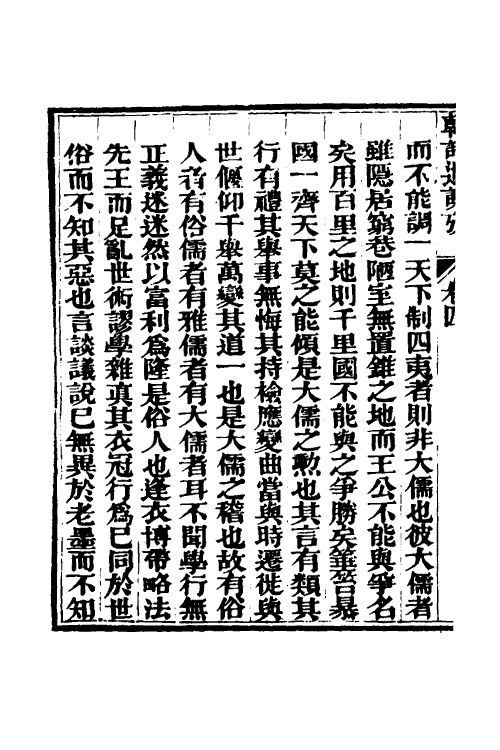 韓詩遺說攷 卷四
而不能調一天下制四夷者則非大儒也彼大儒者
雖隱居窮巷陋室無置錐之地而王公不能與爭名
矣用百里之地則千里國不能與之爭勝矣箠笞暴
國一齊天下莫之能傾是大儒之勲也其言有類其
行有禮其舉事無悔其持檢應變曲當與時遷徙與
世偃仰千舉萬變其道一也是大儒之稽也故有俗
人者有俗儒者有雅儒者有大儒者耳不聞學行無
正義迷迷然以富利爲隆是俗人也逢衣博帶略法
先王而足亂世術謬學雜眞其衣冠行爲已同於世
俗而不知其惡也言談議說已無異於老墨而不知